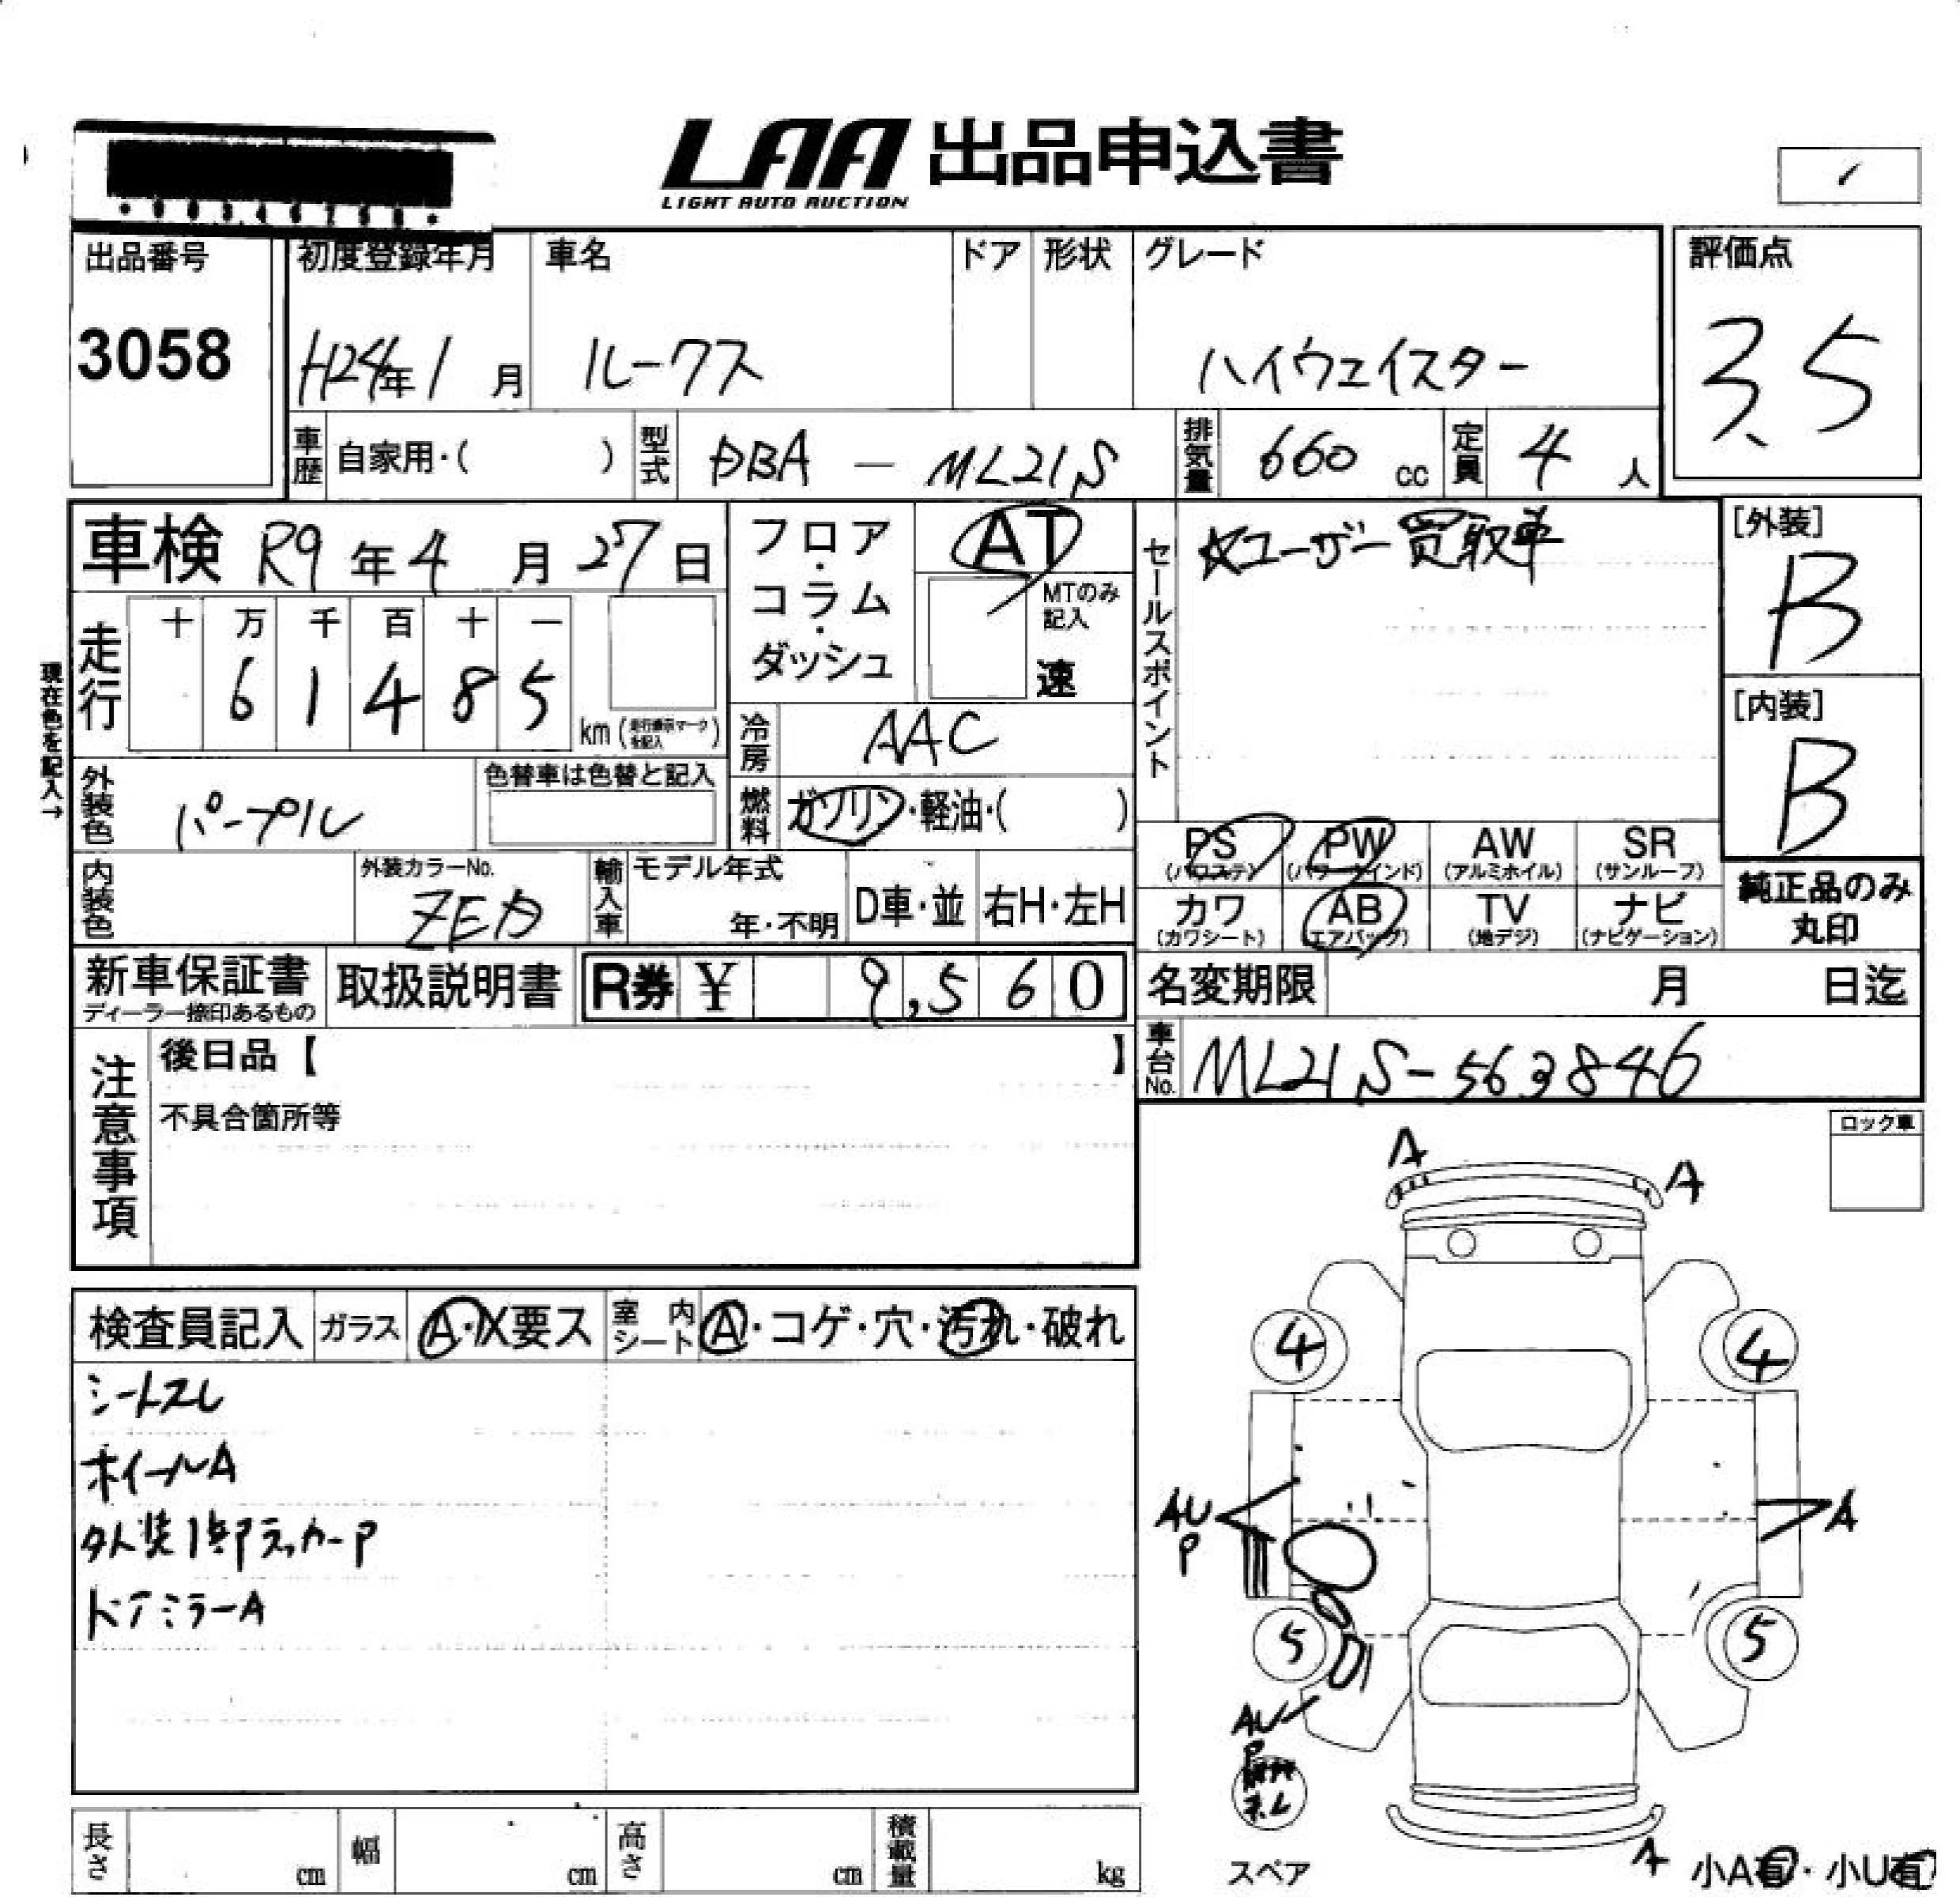 LAA 出品申込書
LIGHT AUTO AUCTION
出品番号 初度登録年月 車名 ドア 形状 グレード 評価点
3058 H24年1月 ルークス ハイウェイスター 3.5
車歴 自家用・( ) 型式 DBA - ML21S 排気量 660 cc 定員 4 人
車検 R9年4月27日 フロア・コラム・ダッシュ AT セールスポイント ☆ユーザー買取車 [外装]
B
MTのみ記入
速
走行 十 万 千 百 十 一
6 1 4 8 5
km (走行表示マークを記入)
現在色を記入→
冷房 AAC [内装]
B
外装色 パープル 色替車は色替と記入 燃料 ガソリン・軽油・( )
PS (パワステ) PW (パワーウインド) AW (アルミホイル) SR (サンルーフ)
内装色 外装カラーNo. 輸入車 モデル年式 年・不明 D車・並 右H・左H
カワ (カワシート) AB (エアバッグ) TV (地デジ) ナビ (ナビゲーション) 純正品のみ丸印
新車保証書 ディーラー捺印あるもの 取扱説明書 R券 ¥ 9,560 名変期限 月 日迄
注意事項 後日品【 】 車台No. ML21S-563846
不具合箇所等
ロック車
A
A
検査員記入 ガラス A・X要ス 室内シート A・コゲ・穴・汚れ・破れ
シートスレ
ホイールA
外装1部ラッカーP
ドアミラーA
4 4
AU
P
A
5 5
AU
P
スペア
A 小A有・小U有
長さ cm 幅 cm 高さ cm 積載量 kg